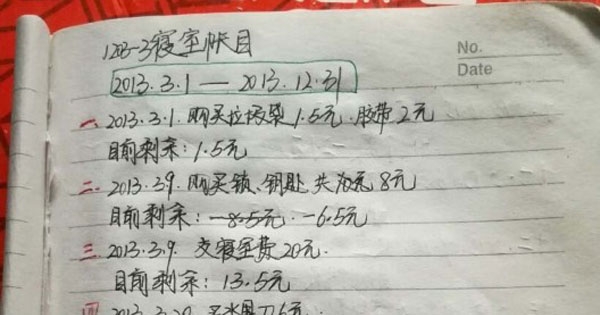 1203-3寝室帐目
No.
Date
2013.3.1 — 2013.12.31
一、2013.3.1. 购买垃圾袋 1.5元、胶带 2元
目前剩余：1.5元
二、2013.3.9. 购买锁、钥匙 共 8元
目前剩余：-6.5元
三、2013.3.9. 支寝室费 20元.
目前剩余：13.5元
四 2013.3.20. 6元